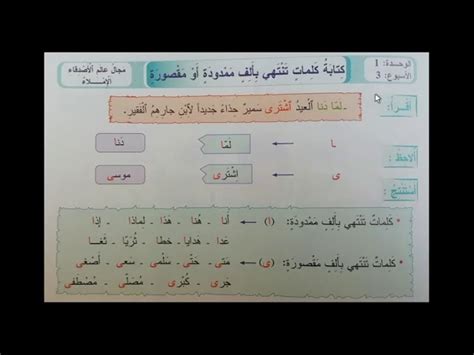 الوحدة: 1
الأسبوع: 3
كِتابَةُ كَلِماتٍ تَنْتَهي بِأَلِفٍ مَمْدودَةٍ أَوْ مَقْصورَةٍ
مجال: عالم الأصدقاء
الإملاء
أَقْرَأُ:
ـ لَمّا دَنا ٱلْعيدُ ٱشْتَرى سَميرٌ حِذاءً جَديداً لِابْنِ جارِهِمُ ٱلْفَقيرِ.
أُلاحِظُ:
ا لَمّا دَنا
ى اشْتَرى موسى
أَسْتَنْتِجُ:
* كَلِماتٌ تَنْتَهي بِأَلِفٍ مَمْدودَةٍ: (ا) أَنا - هُنا - هَذا - لِماذا - إِذا
غَدا - هَدايا - خَطا - ثُرَيّا - ثَغا
* كَلِماتٌ تَنْتَهي بِأَلِفٍ مَقْصورَةٍ: (ى) مَتى - حَتّى - سَلْمى - سَعى - أَصْغى
جَرى - كُبْرى - مُصَلّى - مُصْطَفى